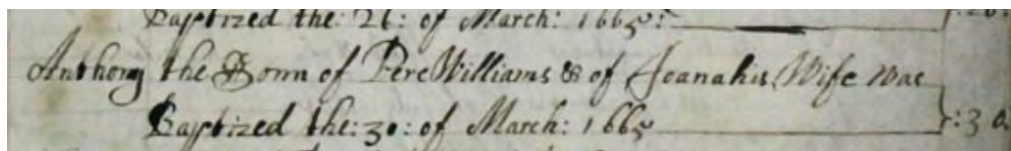 Baptized the: 26: of March: 1665:
Anthony the Sonn of Pere Williams & of Joana his Wife was
Baptized the: 30: of March: 1665 :30: